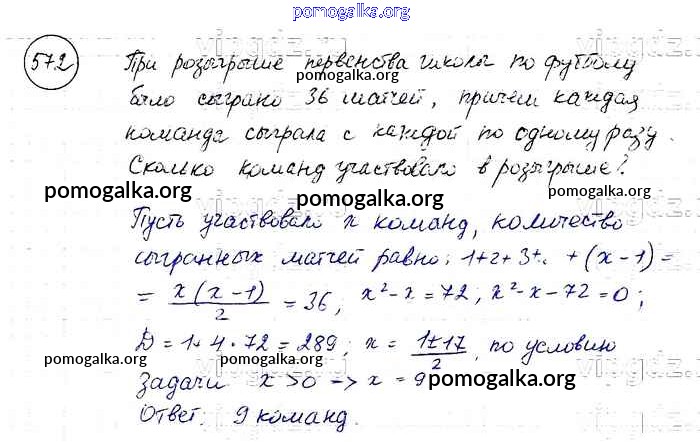 pomogalka.org
572 При розыгрыше первенства школы по футболу
pomogalka.org
было сыграно 36 матчей, причем каждая
команда сыграла с каждой по одному разу.
pomogalka.org
Сколько команд участвовало в розыгрыше?
pomogalka.org pomogalka.org
Пусть участвовало x команд, количество
сыгранных матчей равно: 1+2+3+.. +(x-1)=
pomogalka.org
= x(x-1)/2 = 36; x²-x=72; x²-x-72=0;
D=1+4·72=289; x= 1±17/2, по условию
pomogalka.org pomogalka.org
задачи x>0 -> x=9
Ответ. 9 команд.
pomogalka.org